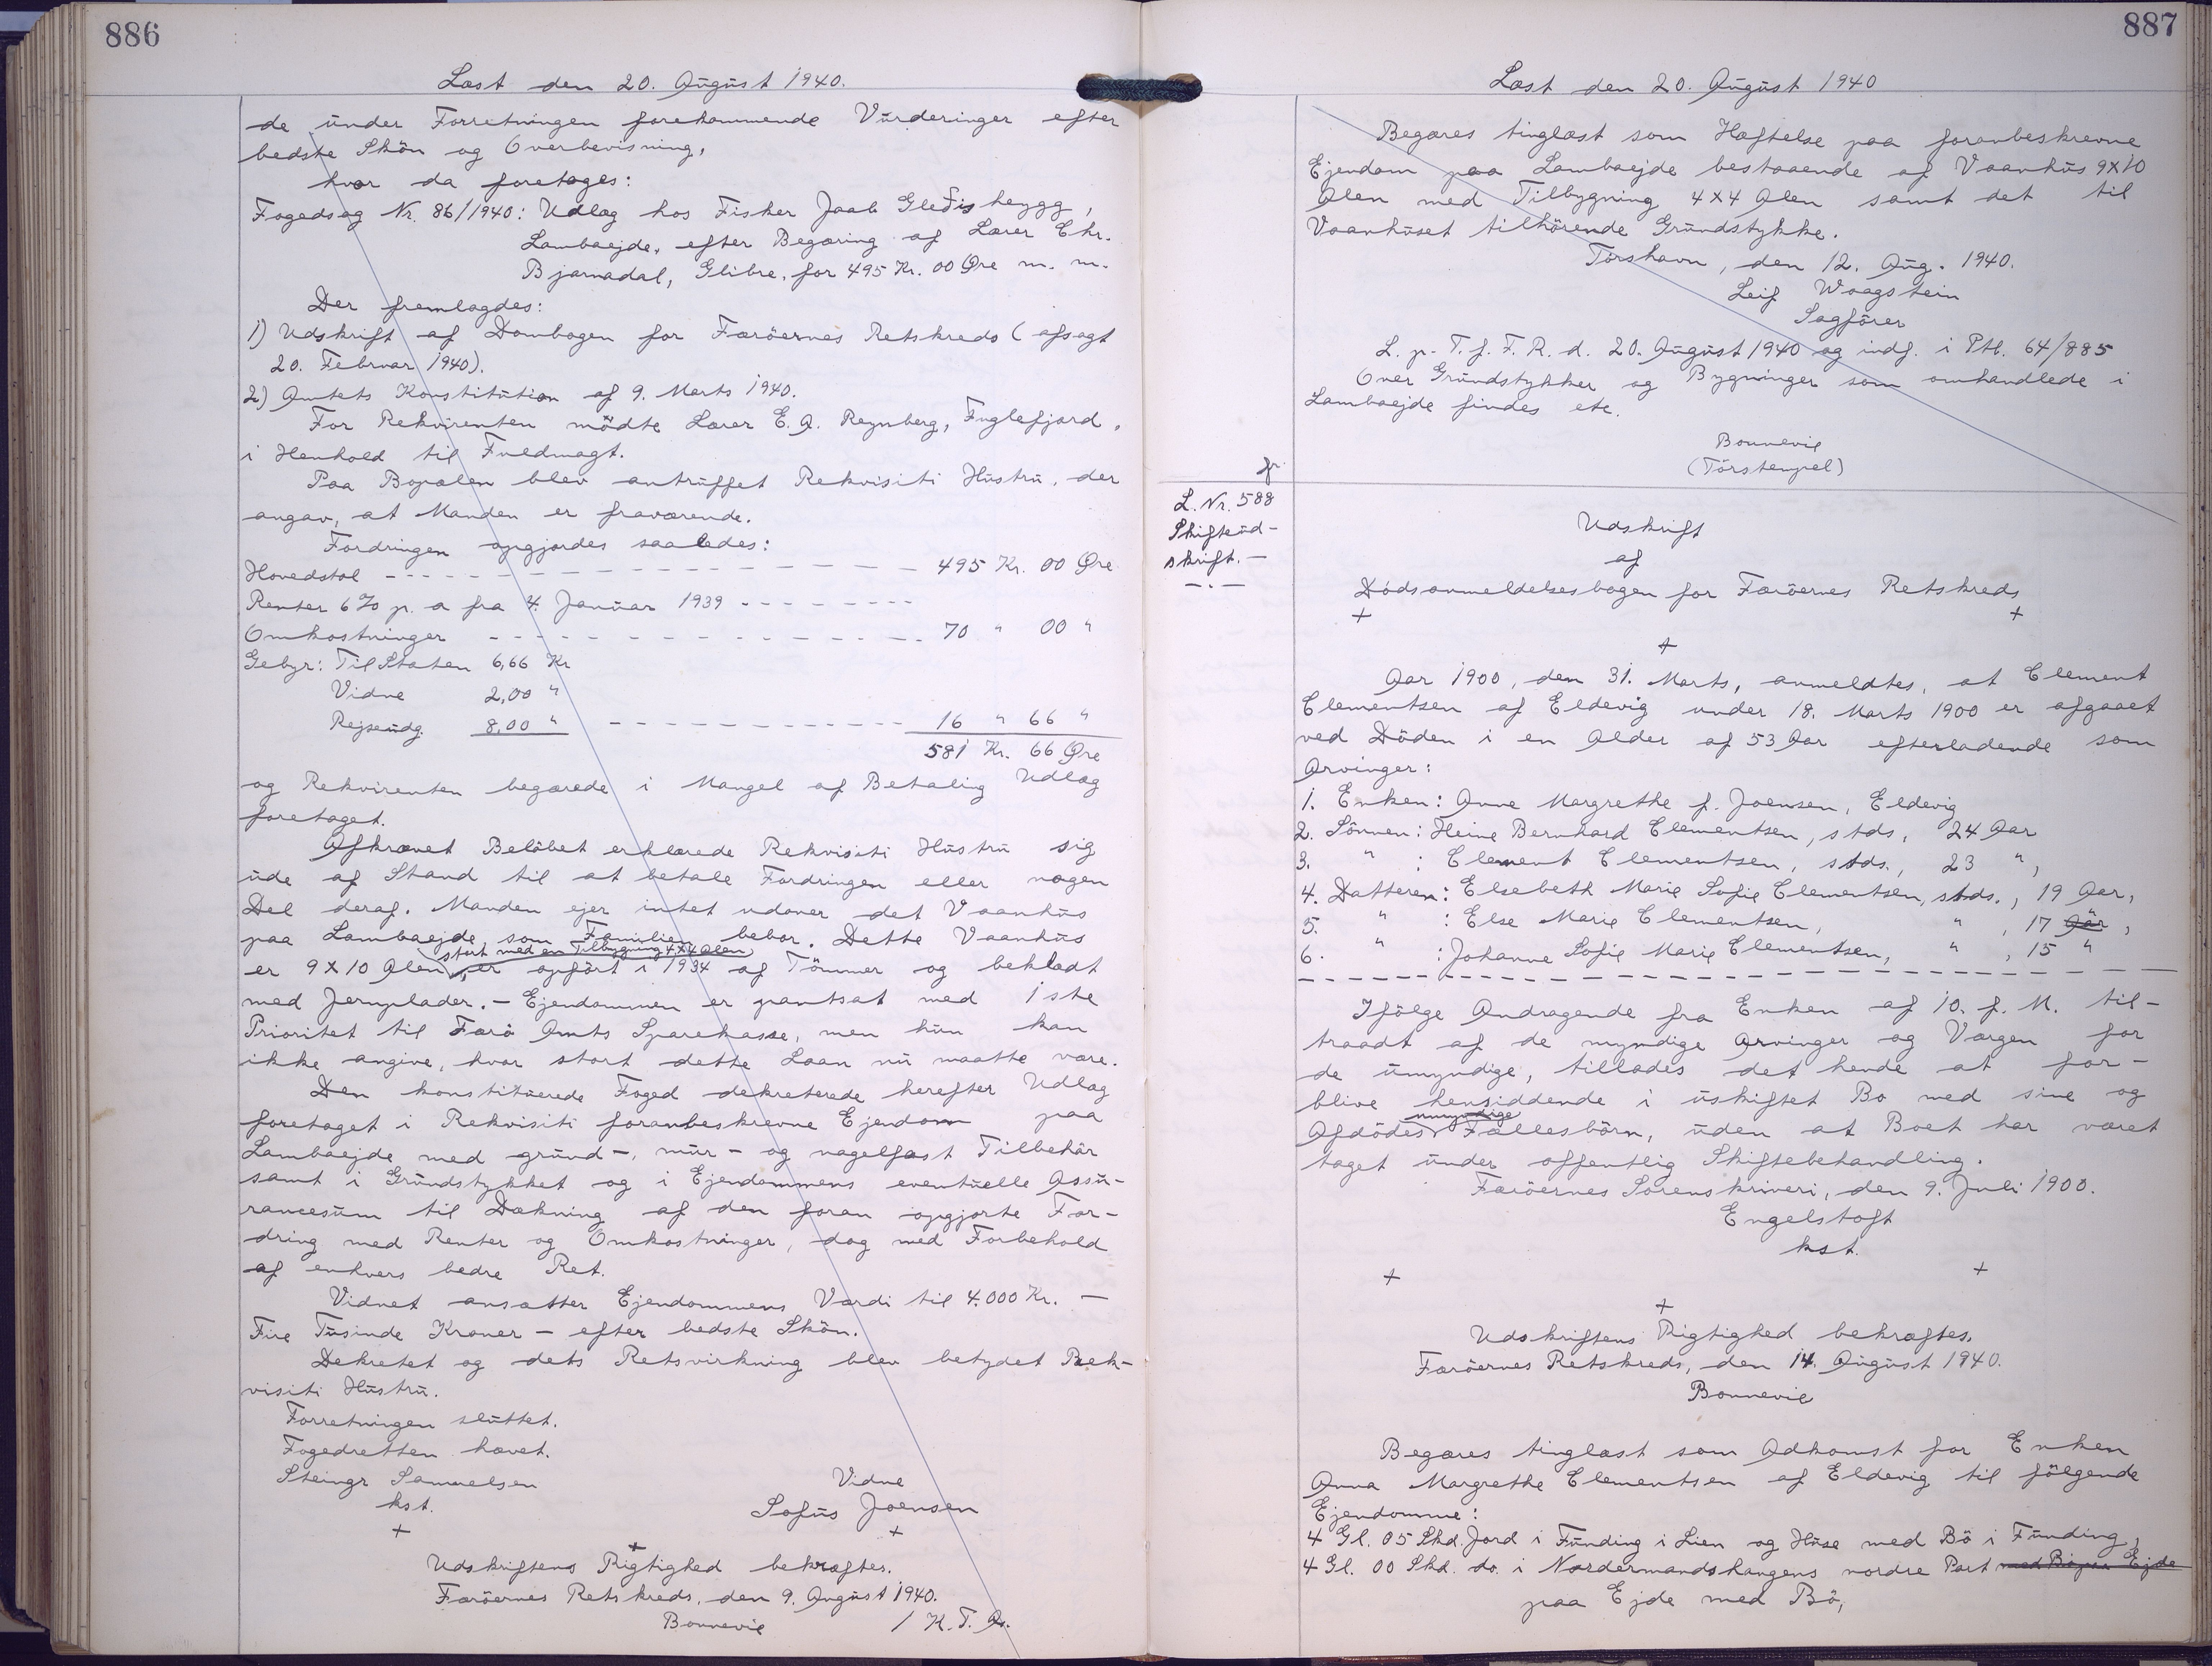 886
Læst den 20. August 1940.
de under Forretningen forekommende Vurderinger efter
bedste Skön og Overbevisning,
hvor da foretoges:
Fogedsag Nr. 86/1940: Udlæg hos Fisker Jaab Gleðisheygg,
Lambaejde, efter Begæring af Lærer Chr.
Bjarnadal, Glibre, for 495 Kr. 00 Øre m. m.
Der fremlagdes:
1) Udskrift af Dombogen for Færöernes Retskreds (afsagt
20. Februar 1940).
2) Amtets Konstitution af 9. Marts 1940.
For Rekvirenten mödte Lærer E. A. Reynberg, Fuglefjord,
i Henhold til Fuldmagt.
Paa Bopælen blev antruffet Rekvisiti Hustru, der
angav, at Manden er fraværende.
Fordringen opgjordes saaledes:
Hovedstol - - - - - - 495 Kr. 00 Øre
Renter 6% p. a fra 4. Januar 1939 - - - - - -
Omkostninger - - - - - - 70 " 00 "
Gebyr: Til Staten 6,66 Kr
Vidne 2,00 "
Rejseudg. 8,00 " - - - - - - 16 " 66 "
581 Kr. 66 Øre
og Rekvirenten begærede i Mangel af Betaling Udlæg
foretaget.
Afkrævet Belöbet erklærede Rekvisiti Hustru sig
ude af Stand til at betale Fordringen eller nogen
Del deraf. Manden ejer intet udover det Vaanhus
paa Lambaejde som Familien bebor. Dette Vaanhus
stort med en Tilbygning 4x4 Alen
er 9 x 10 Alen, er opfört i 1934 af Tömmer og beklædt
med Jernplader. - Ejendommen er pantsat med 1ste
Prioritet til Færö Amts Sparekasse, men hun kan
ikke angive, hvor stort dette Laan nu maatte være.
Den konstituerede Foged dekreterede herefter Udlæg
foretaget i Rekvisiti foranbeskrevne Ejendom paa
Lambaejde med grund-, mur- og nagelfast Tilbehör
samt i Grundstykket og i Ejendommens eventuelle Assu-
rancesum til Dækning af den foran opgjorte For-
dring med Renter og Omkostninger, dog med Forbehold
af enhvers bedre Ret.
Vidnet ansætter Ejendommens Værdi til 4.000 Kr. -
Fire Tusinde Kroner - efter bedste Skön.
Dekretet og dets Retsvirkning blev betydet Rek-
visiti Hustru.
Forretningen sluttet.
Fogedretten hævet.
Steingr Samuelsen Vidne
kst. Sofus Joensen
+ +
+
Udskriftens Rigtighed bekræftes.
Færöernes Retskreds, den 9. August 1940.
Bonnevie / K. T. A.
887
Læst den 20. August 1940
Begæres tinglæst som Hæftelse paa foranbeskrevne
Ejendom paa Lambaejde bestaaende af Vaanhus 9x10
Alen med Tilbygning 4x4 Alen samt det til
Vaanhuset tilhörende Grundstykke.
Törshavn, den 12. Aug. 1940.
Leif Waagstein
Sagförer
L. p. T. f. F. R. d. 20. August 1940 og indf. i Ptb. 64/885
Over Grundstykker og Bygninger som omhandlede i
Lambaejde findes etc.
Bonnevie
(Törstempel)
L. Nr. 588
Skifteud-
skrift. -
- . -
Udskrift
af
Dödsanmeldelsesbogen for Færöernes Retskreds
+ +
+
Aar 1900, den 31. Marts, anmeldtes, at Clement
Clementsen af Eldevig under 18. Marts 1900 er afgaaet
ved Döden i en Alder af 53 Aar efterladende som
Arvinger:
1. Enken: Anne Margrethe f. Joensen, Eldevig
2. Sönnen: Heine Bernhard Clementsen, stds, 24 Aar
3. " : Clement Clementsen, stds., 23 ",
4. Datteren: Elsebeth Marie Sofie Clementsen, stds., 19 Aar,
5. " : Else Marie Clementsen, " , 17 Aar,
6. " : Johanne Sofie Marie Clementsen, " , 15 "
Ifölge Andragende fra Enken af 10. f. M. til-
traadt af de myndige Arvinger og Værgen for
de umyndige, tillades det hende at for-
blive hensiddende i uskiftet Bo med sine og
umyndige
Afdödes Fællesbörn, uden at Boet har været
taget under offentlig Skiftebehandling.
Færöernes Sorenskriveri, den 9. Juli 1900.
Engelstoft
kst.
+ +
+
Udskriftens Rigtighed bekræftes.
Færöernes Retskreds, den 14. August 1940.
Bonnevie
Begæres tinglæst som Adkomst for Enken
Anna Margrethe Clementsen af Eldevig til fölgende
Ejendomme:
4 Gl. 05 Skd. Jord i Funding i Lien og Huse med Bö i Funding,
4 Gl. 00 Skd. do. i Nordermandshangens nordre Part med Bö paa Ejde
paa Ejde med Bö,